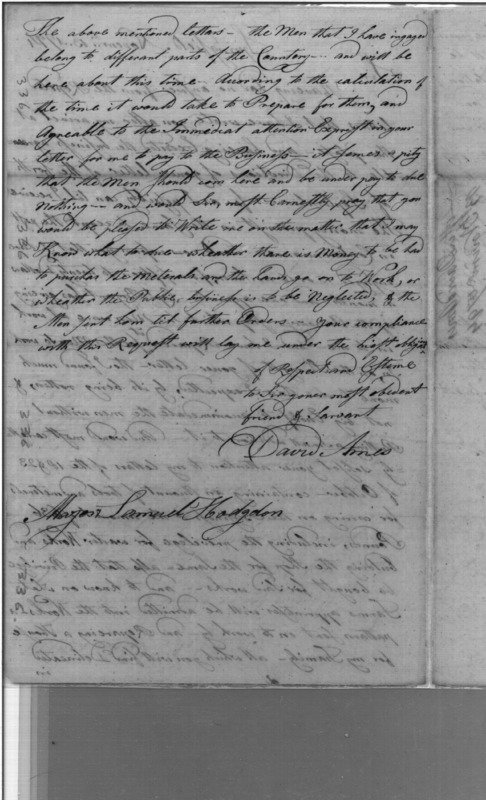 The above mentioned letters – the Men that I have ingaged
belong to different parts of the Country – and will be
here about this time – According to the calculation of
the time it would take to Prepare for them, and
Agreable to the Immedieat attention Exprest in your
letter for me to pay to the Business – it semes a pity
that the Men should com here and be under pay to due
Nothing – and would Sir, most Earnestly pray that you
would be pleased to Write me on the matter that I may
Know what to due – wheather thare is Money to be had
to purchis the Meterals and the hands go on to Work, or
wheather the Publick business is to be Neglected, & the
Men sent hom til farther Orders – your compliance
with this Request will lay me under the hiest obligat
of Respect and Esteme
to Sir your most obedent
friend & Sarvent
David Ames
Major Samuel Hodgdon